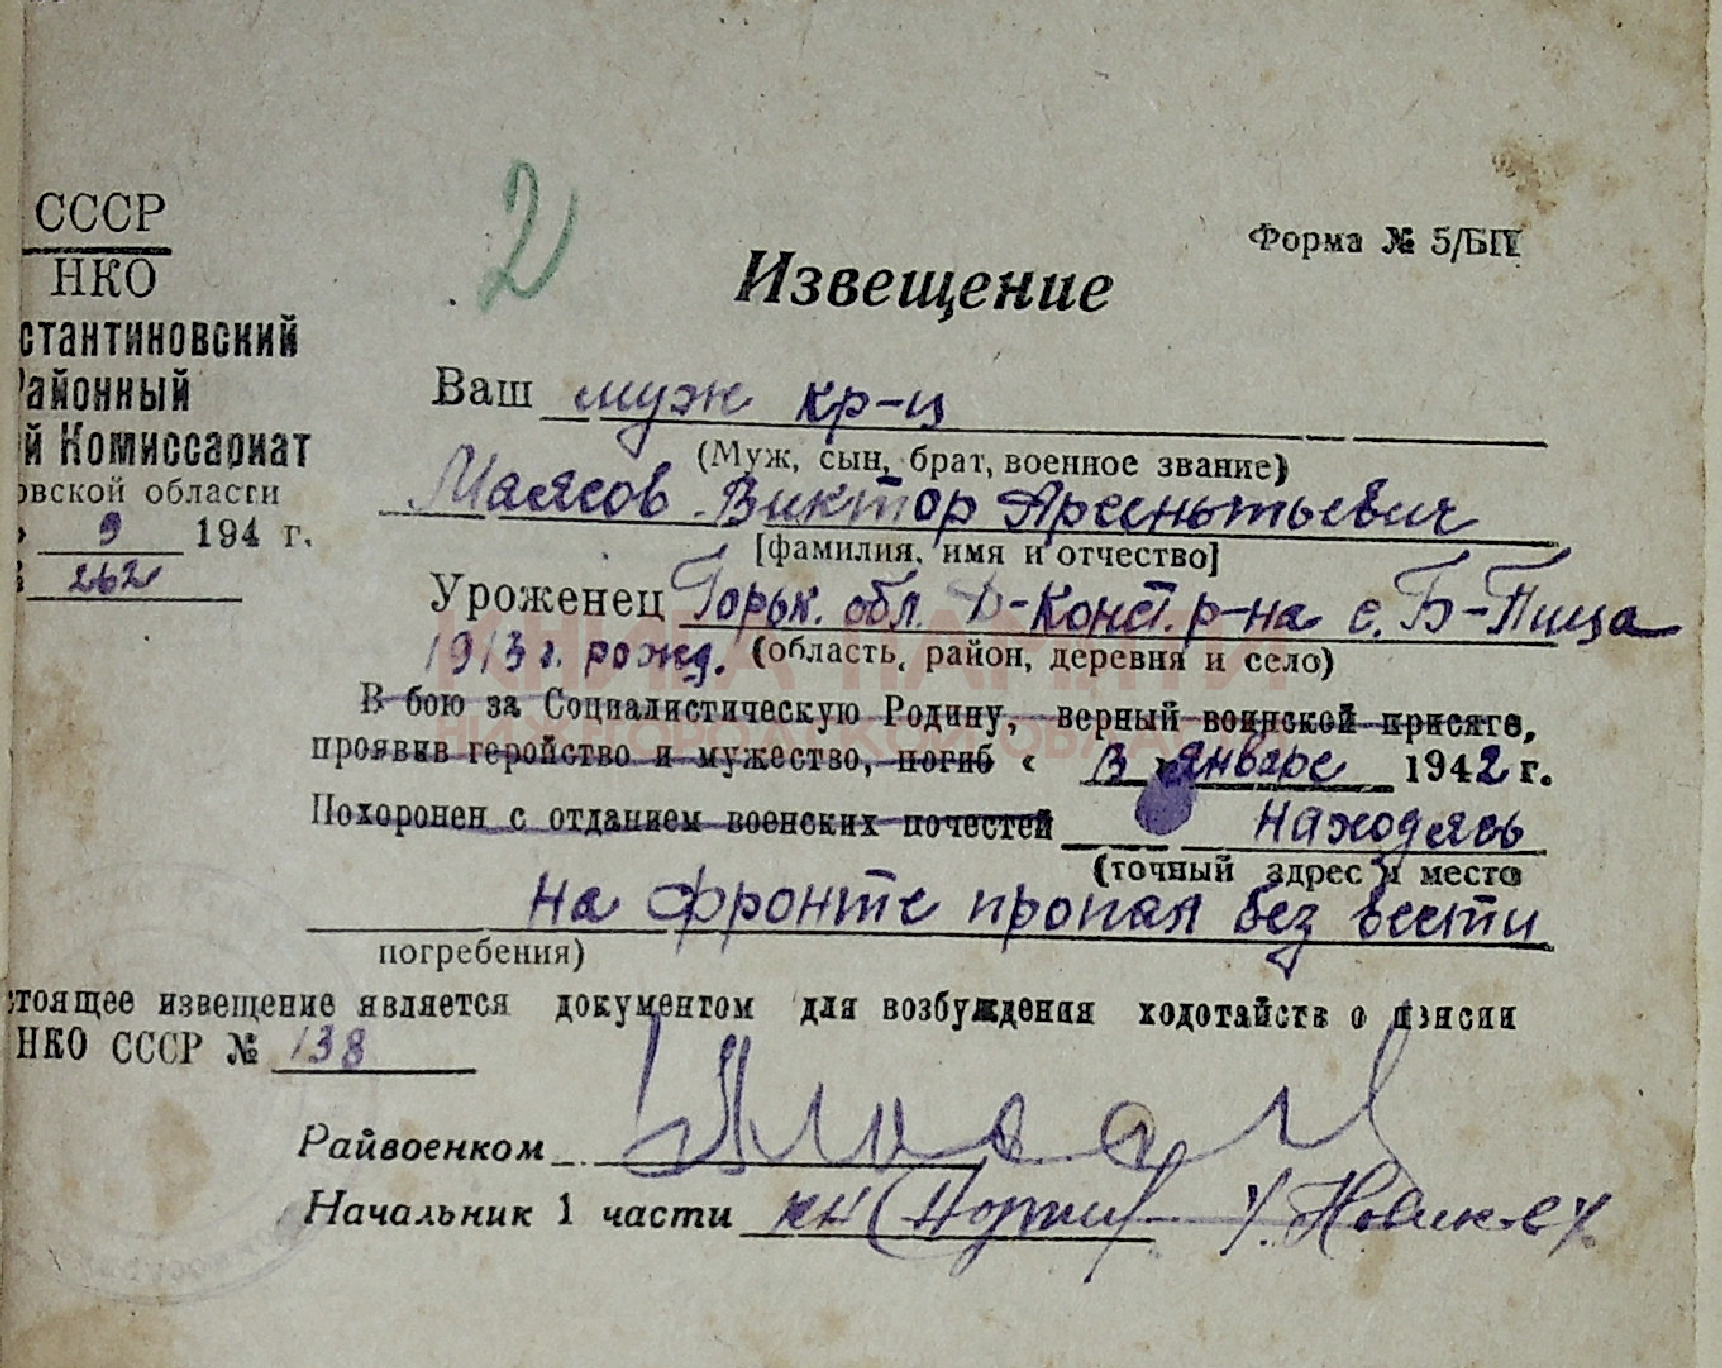 2
СССР
НКО
стантиновский
Районный
й Комиссариат
овской области
9 194 г.
262
Форма № 5/БП
Извещение
Ваш муж кр-ц
(Муж, сын, брат, военное звание)
Маясов Виктор Арсентьевич
[фамилия, имя и отчество]
Уроженец Горьк. обл. Д-Конст. р-на с. Б-Пица
1913 г. рожд. (область, район, деревня и село)
В бою за Социалистическую Родину, верный воинской присяге,
проявив геройство и мужество, погиб « в » январе 1942 г.
Похоронен с отданием военских почестей находясь
(точный адрес и место
на фронте пропал без вести
погребения)
стоящее извещение является документом для возбуждения ходотайств о пэнсии
НКО СССР № 138
Райвоенком
Начальник 1 части
КНИГА ПАМЯТИ
НИЖЕГОРОДСКОЙ ОБЛАСТИ